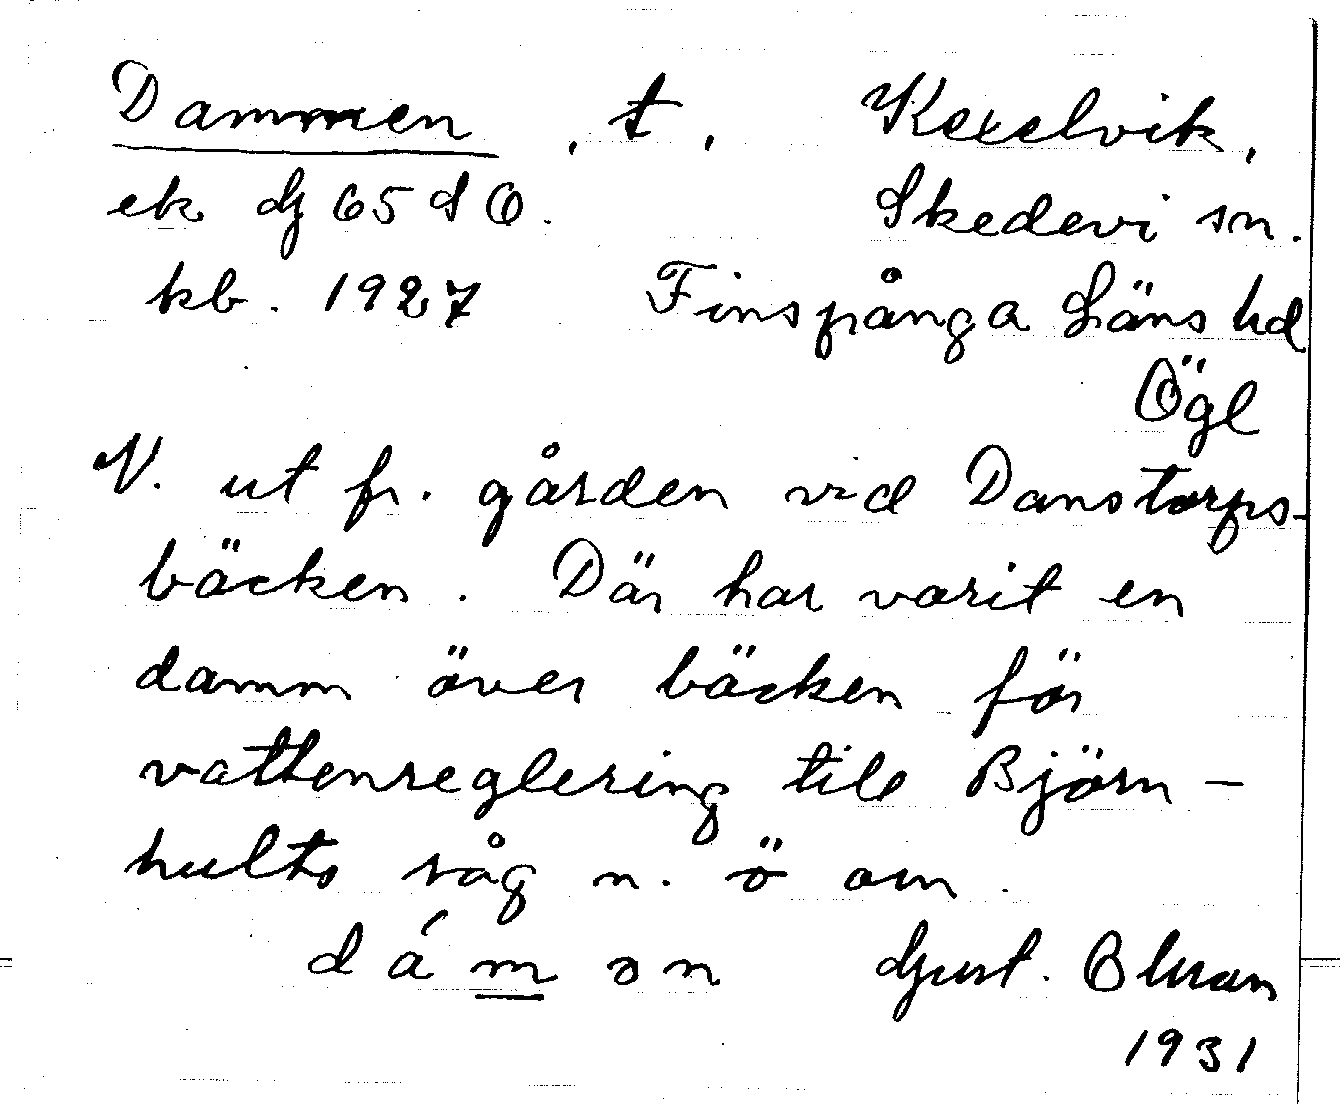 Dammen, t, Kexelvik,
ek G 65 S O. Skedevi sn.
kb. 1927 Finspånga Läns hd
Ögl
V. ut fr. gården vid Danstorps-
bäcken. Där har varit en
damm över bäcken för
vattenreglering till Björn-
hults såg n. ö om.
dámən Gust. Ohman
1931